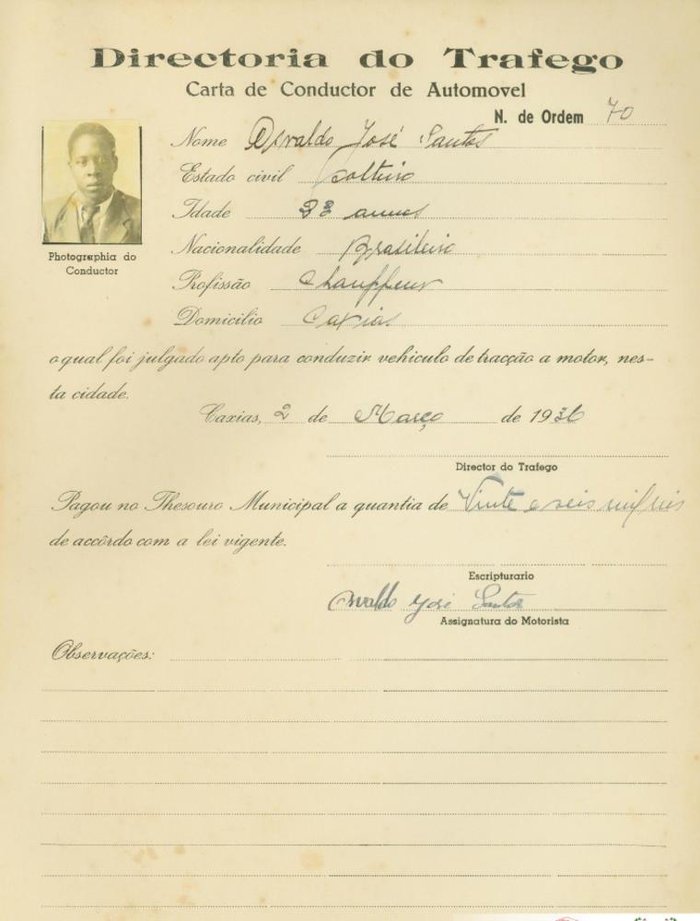 Directoria do Trafego
Carta de Conductor de Automovel
N. de Ordem 70
Nome Osvaldo José Santos
Estado civil Solteiro
Idade annos
Nacionalidade Brasileiro
Profissão Chauffeur
Domicilio Caxias
Photographia do
Conductor
o qual foi julgado apto para conduzir vehiculo de tracção a motor, nes-
ta cidade.
Caxias, 2 de Março de 1936
Director do Trafego
Pagou no Thesouro Municipal a quantia de Vinte e seis mil reis
de accôrdo com a lei vigente.
Escripturario
Osvaldo José Santos
Assignatura do Motorista
Observações: